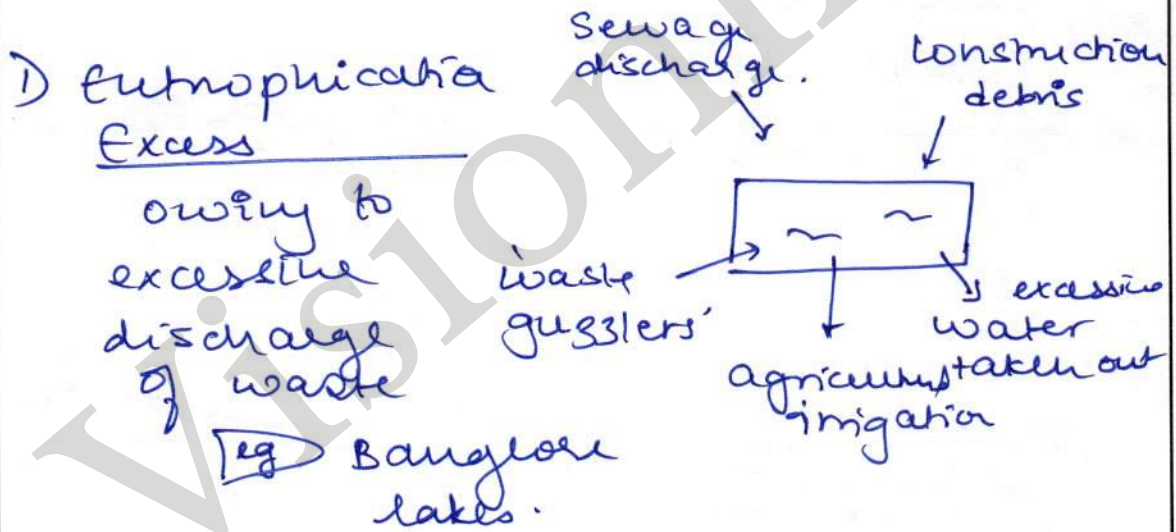 1) Eutrophicatia
Excess
owing to
excessive
discharge
of waste
eg Banglore
lakes.
Sewage
discharge.
Construction
debris
waste
guzzlers'
agriculture
irrigation
excessive
water
taken out
Vision